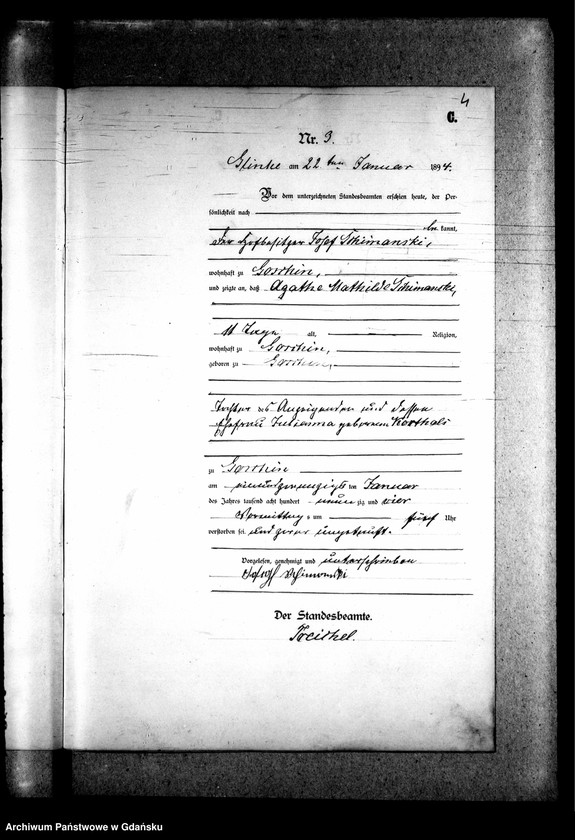 4
C.
Nr. 3.
am 22 ten Januar 1894.
Vor dem unterzeichneten Standesbeamten erschien heute, der Per-
sönlichkeit nach
be kannt,
der Hofbesitzer Josef Schimanski,
wohnhaft zu Gorrhin,
und zeigte an, daß Agathe Mathilde Schimanski,
11 Tage alt, Religion,
wohnhaft zu Gorrhin,
geboren zu Gorrhin,
Tochter des Anzeigenden und dessen
Ehefrau Julianna geborenen Korthals
zu Gorrhin
am einundzwanzigsten Januar
des Jahres tausend acht hundert neun zig und vier
Vormittag s um fünf Uhr
verstorben sei und zwar ungetauft.
Vorgelesen, genehmigt und unterschrieben
Josef Schimanski
Der Standesbeamte.
Archiwum Państwowe w Gdańsku